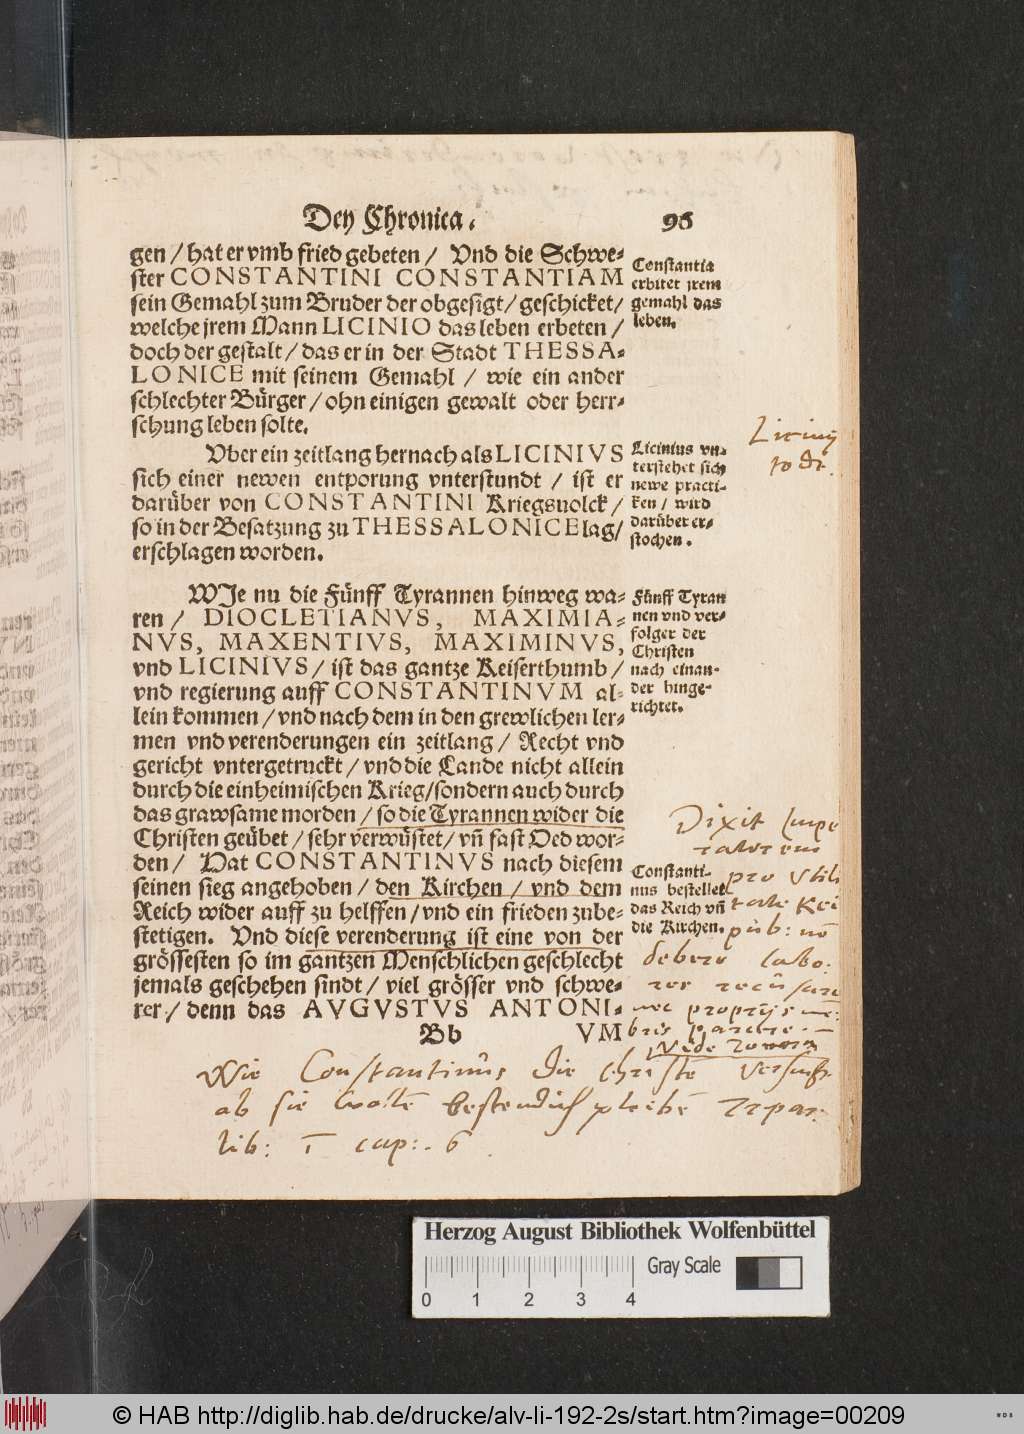 Dey Chronica.
96
gen / hat er vmb fried gebeten / Vnd die Schwe-
ster CONSTANTINI CONSTANTIAM
sein Gemahl zum Bruder der obgesigt / geschicket /
welche jrem Mann LICINIO das leben erbeten /
doch der gestalt / das er in der Stadt THESSA-
LONICE mit seinem Gemahl / wie ein ander
schlechter Bürger / ohn einigen gewalt oder herr-
schung leben solte.
Constantia
erbitet jrem
gemahl das
leben.
Vber ein zeitlang hernach als LICINIVS
sich einer newen entporung vnterstundt / ist er
darüber von CONSTANTINI Kriegsuolck /
so in der Besatzung zu THESSALONICE lag /
erschlagen worden.
Licinius vn-
terstehet sich
newe practi-
ken / wird
darüber er-
stochen.
Licinij
todt.
WJe nu die Fünff Tyrannen hinweg wa-
ren / DIOCLETIANVS, MAXIMIA-
NVS, MAXENTIVS, MAXIMINVS,
vnd LICINIVS / ist das gantze Keiserthumb /
vnd regierung auff CONSTANTINVM al-
lein kommen / vnd nach dem in den grewlichen ler-
men vnd verenderungen ein zeitlang / Recht vnd
gericht vntergetruckt / vnd die Lande nicht allein
durch die einheimischen Krieg / sondern auch durch
das grawsame morden / so die Tyrannen wider die
Christen geübet / sehr verwüstet / vn̄ fast Oed wor-
den / Hat CONSTANTINVS nach diesem
seinen sieg angehoben / den Kirchen / vnd dem
Reich wider auff zu helffen / vnd ein frieden zube-
stetigen. Vnd diese verenderung ist eine von der
grössesten so im gantzen Menschlichen geschlecht
jemals geschehen sindt / viel grösser vnd schwe-
rer / denn das AVGVSTVS ANTONI-
Bb
VM
Fünff Tyran
nen vnd ver-
folger der
Christen
nach einan-
der hinge-
richtet.
Constanti-
nus bestellet
das Reich vn̄
die Kirchen.
Dixit Impe
ratorem
pro vtili
tate Rei
pub: nō
debere labo.
nec proprijs
Wie Constantinus die Christē
ob sie woltē bestendich pleibē
lib: 1 cap: 6
Herzog August Bibliothek Wolfenbüttel
Gray Scale
0 1 2 3 4
© HAB http://diglib.hab.de/drucke/alv-li-192-2s/start.htm?image=00209